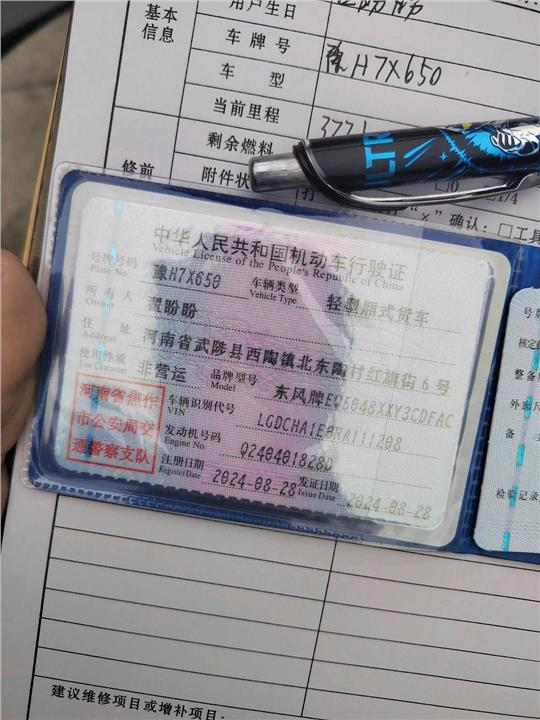 基本
信息
用户生日
车牌号
豫H7X650
车 型
当前里程
377
剩余燃料
修前
附件状
"×"确认：□工具
中华人民共和国机动车行驶证
Vehicle License of the People's Republic of China
号牌号码 豫H7X650 车辆类型 轻型厢式货车
Plate No. Vehicle Type
所有人 翟盼盼
Owner
住 址 河南省武陟县西陶镇北东陶村红旗街6号
Address
使用性质 非营运 品牌型号 东风牌EQ5048XXY3CDFAC
Use Character Model
河南省焦作
市公安局交
通警察支队
车辆识别代号 LGDCHA1E0RA111208
VIN
发动机号码 Q240401828D
Engine No.
注册日期 2024-08-28 发证日期 2024-08-28
Register Date Issue Date
号牌
核定
整备
外廓尺
备
检验记录
建议维修项目或增补项目：